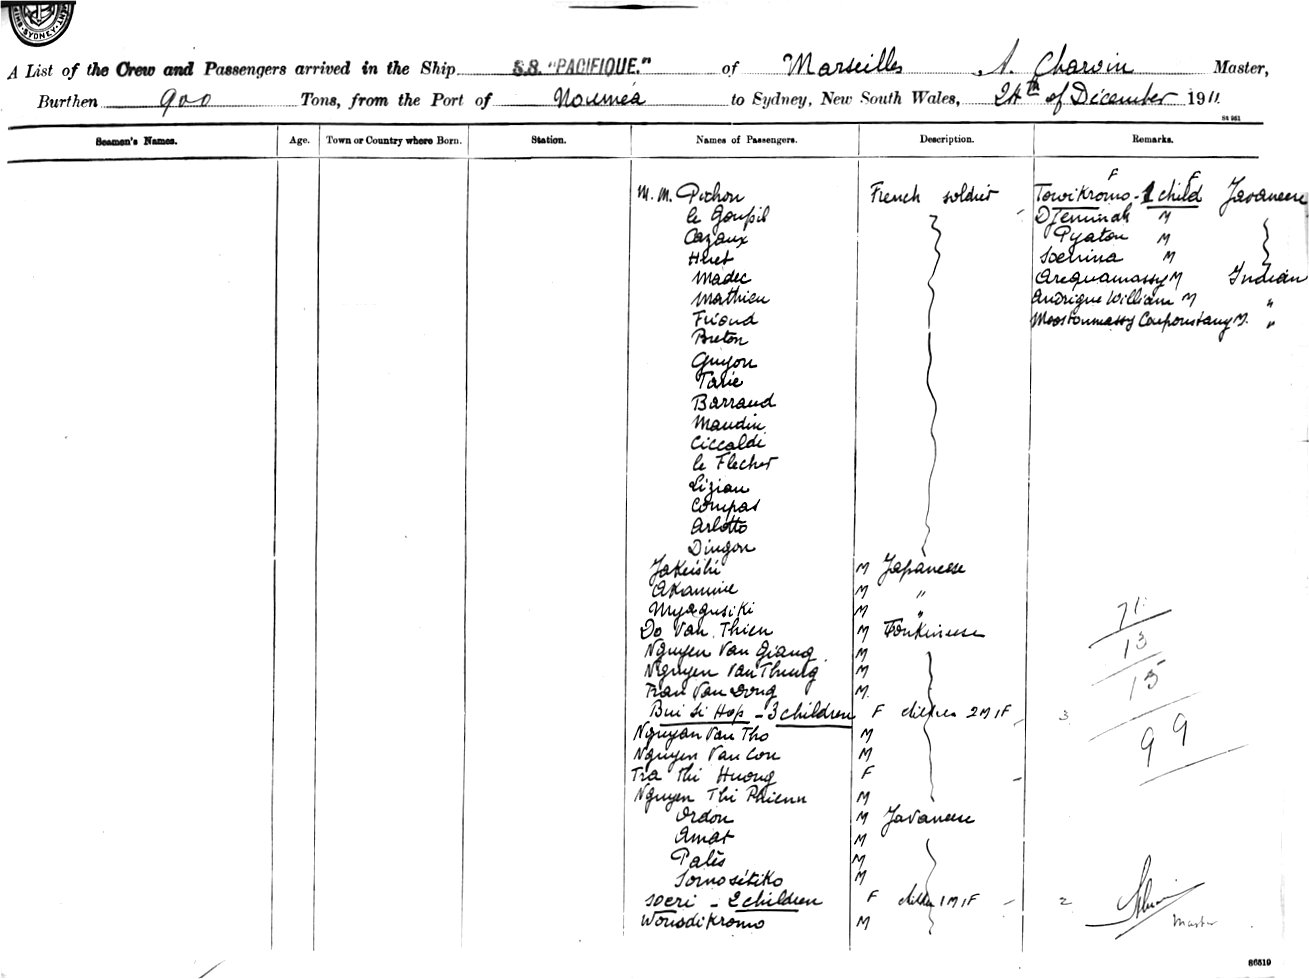 SYDNEY
A List of the Crew and Passengers arrived in the Ship S.S. "PACIFIQUE." of Marseilles A. Charvin Master,
Burthen 900 Tons, from the Port of Noumea to Sydney, New South Wales, 24th of Décember 1911.
St 951
Seamen's Names. Age. Town or Country where Born. Station. Names of Passengers. Description. Remarks.
F F
M. M. Pichon French soldier Towikromo - 1 child Javaneese
le Goupil Djeminah M
Cazaux Pyaton M
Huet Soenina M
Madec Arequamassy M Indian
Mathieu Andrique William M "
Frioud Moostoumassy Couponstany M. "
Breton
Guyon
Tarie
Barraud
Maudin
Ciccaldi
le Flecher
Lizian
Compas
Arlotto
Dingon
Jakeishi M Japaneese
Akamine M "
Myagusiki M "
Do Van Thien M Tonkineese
Nguyen Van Giang M
Nguyen Van Thung M
Tran Van Dong M.
Bui Si Hop - 3 children F children 2 M 1 F 3
Nguyan Van Tho M
Nguyen Van Con M
Tra Thi Huong F
Nguyen Thi Phienn M
Ordon M Javaneese
Amat M
Palès M
Sornosétiko M
Soeri - 2 children F childen 1 M 1 F 2
Wonsodikromo M
71
13
15
99
Master
86519